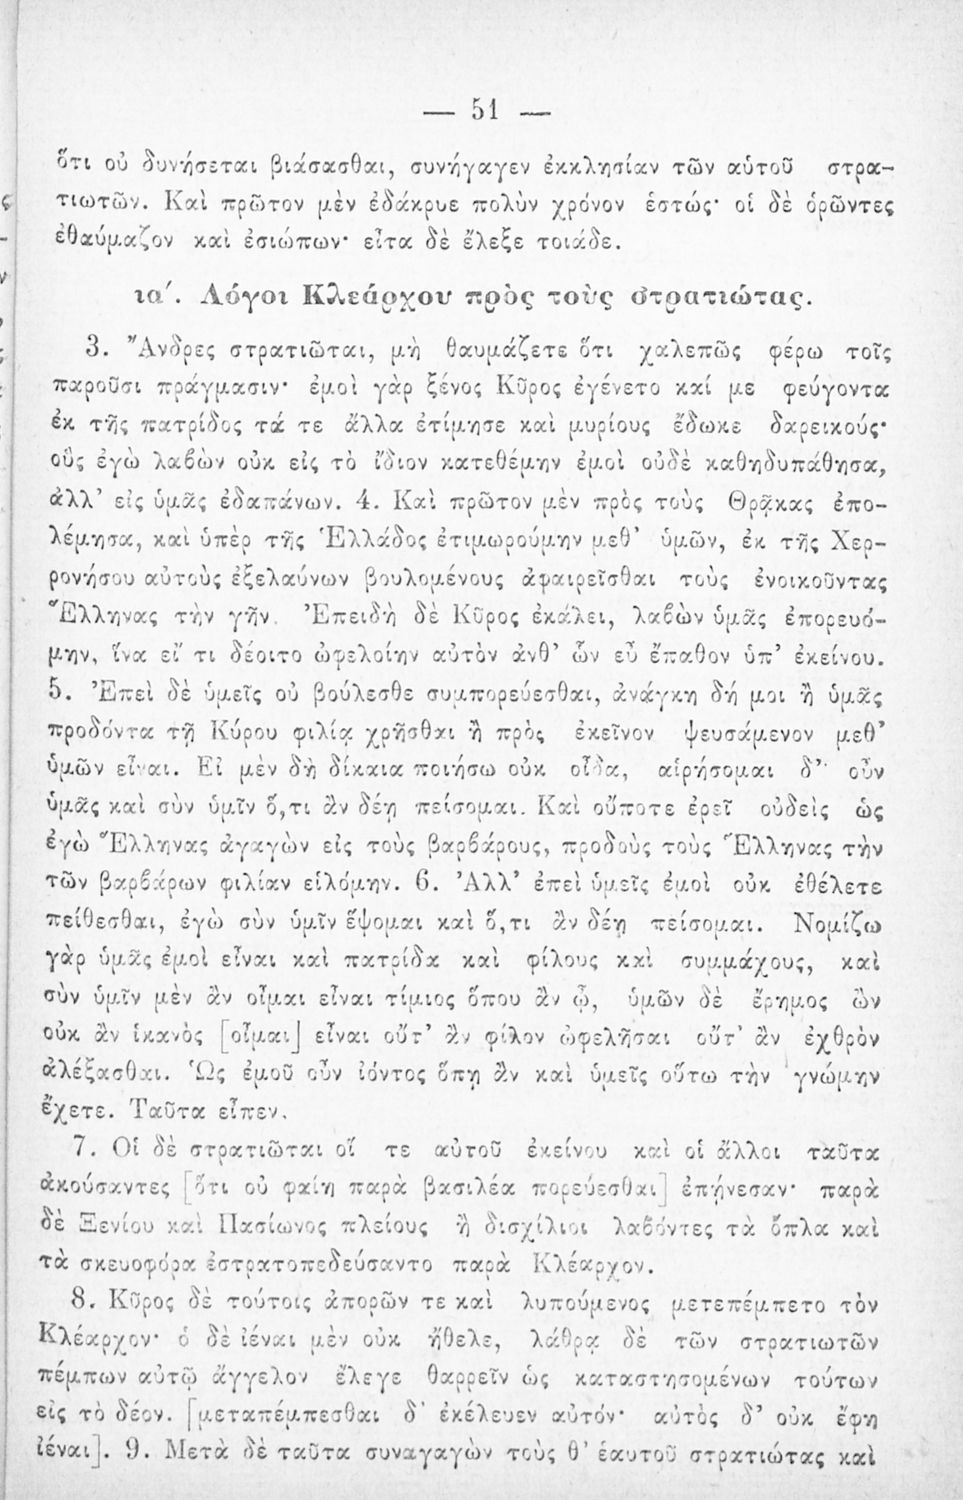 — 51 —
ὅτι οὐ δυνήσεται βιάσασθαι, συνήγαγεν ἐκκλησίαν τῶν αὑτοῦ στρα-
τιωτῶν. Καὶ πρῶτον μὲν ἐδάκρυε πολὺν χρόνον ἑστώς· οἱ δὲ ὁρῶντες
ἐθαύμαζον καὶ ἐσιώπων· εἶτα δὲ ἔλεξε τοιάδε.
ια΄. Λόγοι Κλεάρχου πρὸς τοὺς στρατιώτας.
3. Ἄνδρες στρατιῶται, μὴ θαυμάζετε ὅτι χαλεπῶς φέρω τοῖς
παροῦσι πράγμασιν· ἐμοὶ γὰρ ξένος Κῦρος ἐγένετο καί με φεύγοντα
ἐκ τῆς πατρίδος τά τε ἄλλα ἐτίμησε καὶ μυρίους ἔδωκε δαρεικούς·
οὓς ἐγὼ λαβὼν οὐκ εἰς τὸ ἴδιον κατεθέμην ἐμοὶ οὐδὲ καθηδυπάθησα,
ἀλλ’ εἰς ὑμᾶς ἐδαπάνων. 4. Καὶ πρῶτον μὲν πρὸς τοὺς Θρᾷκας ἐπο-
λέμησα, καὶ ὑπὲρ τῆς Ἑλλάδος ἐτιμωρούμην μεθ’ ὑμῶν, ἐκ τῆς Χερ-
ρονήσου αὐτοὺς ἐξελαύνων βουλομένους ἀφαιρεῖσθαι τοὺς ἐνοικοῦντας
Ἕλληνας τὴν γῆν. Ἐπειδὴ δὲ Κῦρος ἐκάλει, λαβὼν ὑμᾶς ἐπορευό-
μην, ἵνα εἴ τι δέοιτο ὠφελοίην αὐτὸν ἀνθ’ ὧν εὖ ἔπαθον ὑπ’ ἐκείνου.
5. Ἐπεὶ δὲ ὑμεῖς οὐ βούλεσθε συμπορεύεσθαι, ἀνάγκη δή μοι ἢ ὑμᾶς
προδόντα τῇ Κύρου φιλίᾳ χρῆσθαι ἢ πρὸς ἐκεῖνον ψευσάμενον μεθ’
ὑμῶν εἶναι. Εἰ μὲν δὴ δίκαια ποιήσω οὐκ οἶδα, αἱρήσομαι δ’ οὖν
ὑμᾶς καὶ σὺν ὑμῖν ὅ,τι ἂν δέῃ πείσομαι. Καὶ οὔποτε ἐρεῖ οὐδεὶς ὡς
ἐγὼ Ἕλληνας ἀγαγὼν εἰς τοὺς βαρβάρους, προδοὺς τοὺς Ἕλληνας τὴν
τῶν βαρβάρων φιλίαν εἱλόμην. 6. Ἀλλ’ ἐπεὶ ὑμεῖς ἐμοὶ οὐκ ἐθέλετε
πείθεσθαι, ἐγὼ σὺν ὑμῖν ἕψομαι καὶ ὅ,τι ἂν δέῃ πείσομαι. Νομίζω
γὰρ ὑμᾶς ἐμοὶ εἶναι καὶ πατρίδα καὶ φίλους καὶ συμμάχους, καὶ
σὺν ὑμῖν μὲν ἂν οἶμαι εἶναι τίμιος ὅπου ἂν ὦ, ὑμῶν δὲ ἔρημος ὢν
οὐκ ἂν ἱκανὸς [οἶμαι] εἶναι οὔτ’ ἂν φίλον ὠφελῆσαι οὔτ’ ἂν ἐχθρὸν
ἀλέξασθαι. Ὡς ἐμοῦ οὖν ἰόντος ὅπῃ ἂν καὶ ὑμεῖς οὕτω τὴν γνώμην
ἔχετε. Ταῦτα εἶπεν.
7. Οἱ δὲ στρατιῶται οἵ τε αὐτοῦ ἐκείνου καὶ οἱ ἄλλοι ταῦτα
ἀκούσαντες [ὅτι οὐ φαίη παρὰ βασιλέα πορεύεσθαι] ἐπῄνεσαν· παρὰ
δὲ Ξενίου καὶ Πασίωνος πλείους ἢ δισχίλιοι λαβόντες τὰ ὅπλα καὶ
τὰ σκευοφόρα ἐστρατοπεδεύσαντο παρὰ Κλέαρχον.
8. Κῦρος δὲ τούτοις ἀπορῶν τε καὶ λυπούμενος μετεπέμπετο τὸν
Κλέαρχον· ὁ δὲ ἰέναι μὲν οὐκ ἤθελε, λάθρᾳ δὲ τῶν στρατιωτῶν
πέμπων αὐτῷ ἄγγελον ἔλεγε θαρρεῖν ὡς καταστησομένων τούτων
εἰς τὸ δέον. [μεταπέμπεσθαι δ’ ἐκέλευεν αὐτόν· αὐτὸς δ’ οὐκ ἔφη
ἰέναι]. 9. Μετὰ δὲ ταῦτα συναγαγὼν τοὺς θ’ ἑαυτοῦ στρατιώτας καὶ